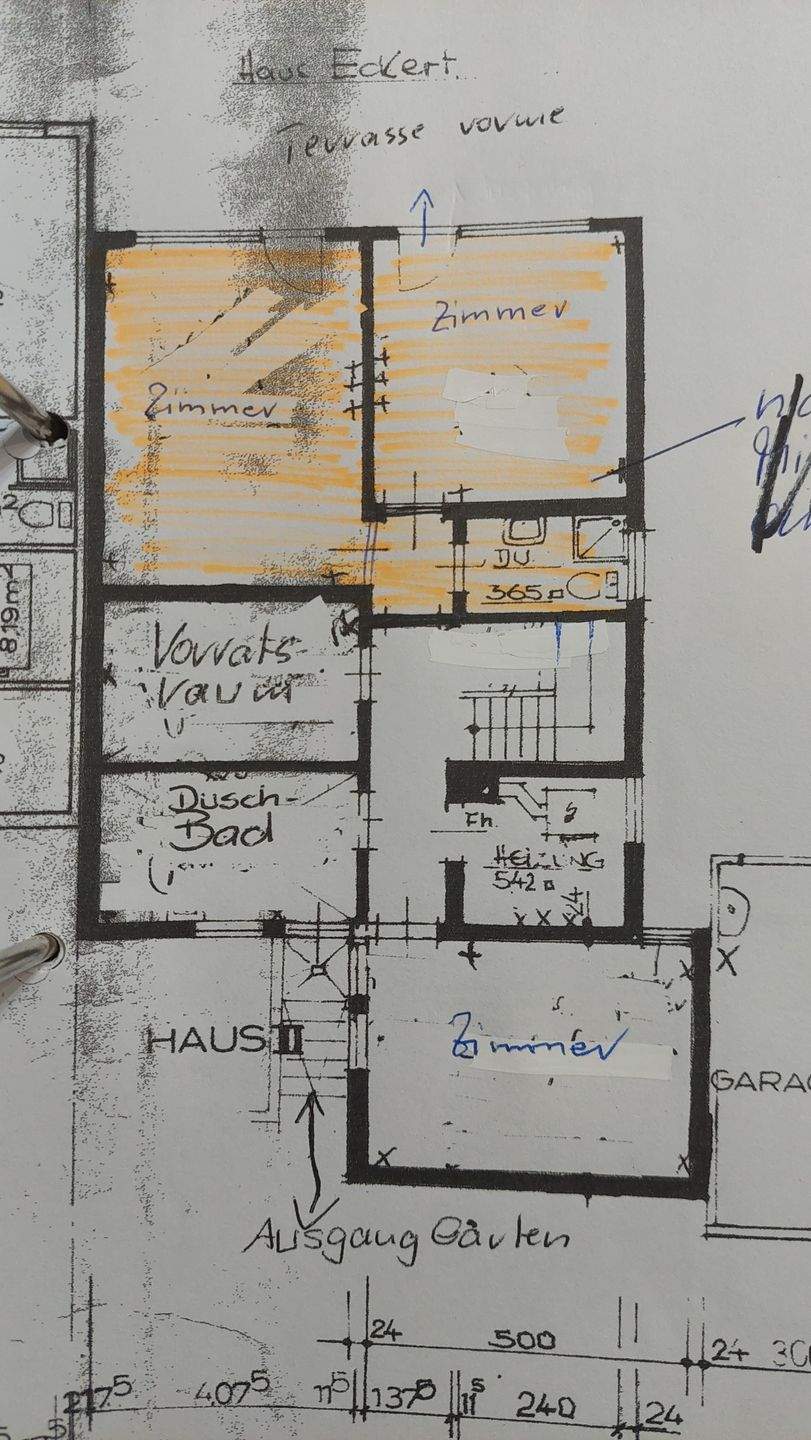 Haus Eckert
Terrasse vorne
Zimmer
Zimmer
DU
365
8,19 m²
Vorrats-
raum
Dusch-
Bad
Fh
HEIZUNG
542
24
HAUS II
Zimmer
GARA
Ausgang Garten
24
500
24
300
217⁵
407⁵
11⁵
137⁵
11⁵
240
24